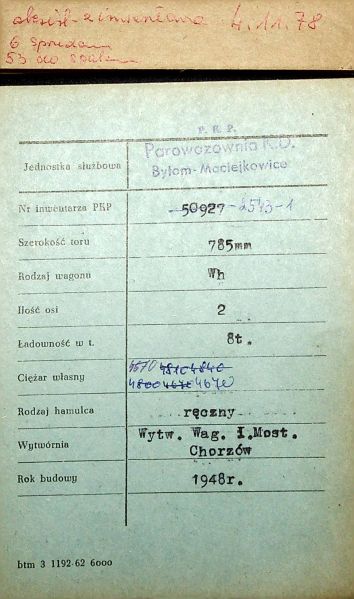 z inwentarza 4.11.78
6
53 do
P.K.P.
Parowozownia K.D.
Bytom-Maciejkowice
Jednostka służbowa
Nr inwentarza PKP 50927 - 2543-1
Szerokość toru 785mm
Rodzaj wagonu Wh
Ilość osi 2
Ładowność w t. 8t.
4670 4810 4840
Ciężar własny 4800 4670 4670
Rodzaj hamulca ręczny
Wytwórnia Wytw. Wag. I.Most.
Chorzów
Rok budowy 1948r.
btm 3 1192-62 6000